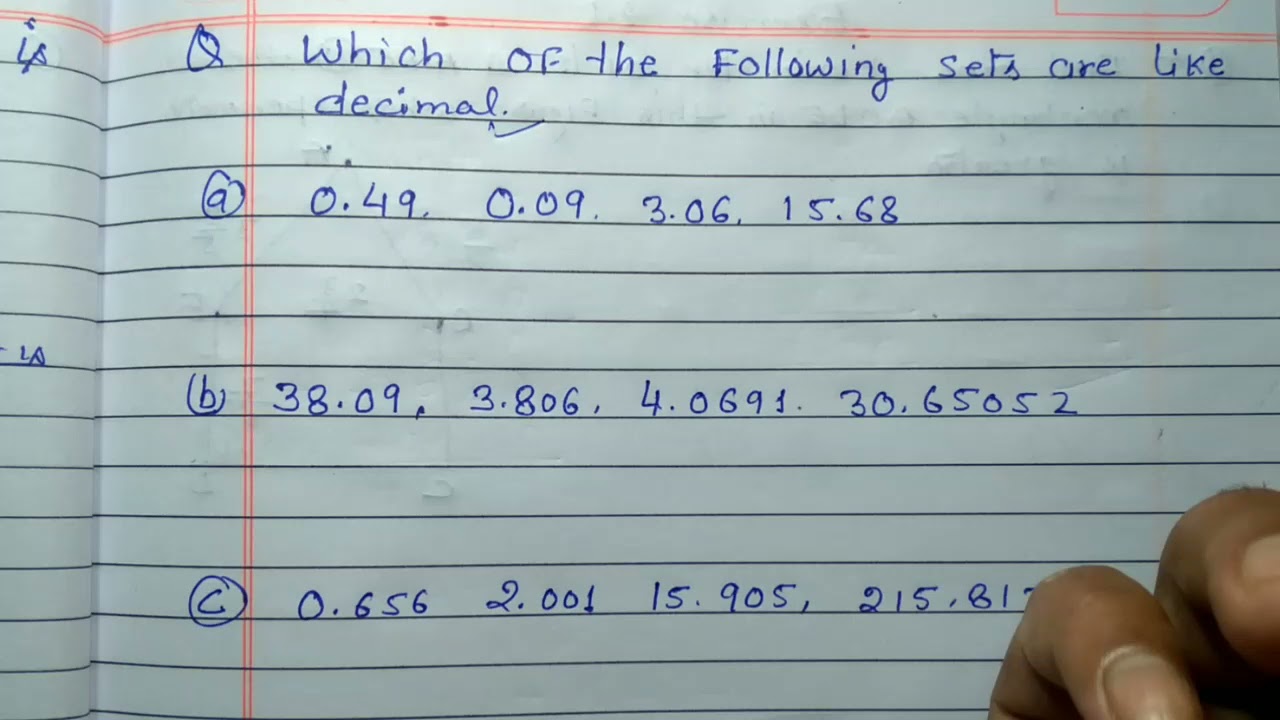 is
Q Which OF the Following sets are like
decimal.
(a) 0.49, 0.09, 3.06, 15.68
is
(b) 38.09, 3.806, 4.0691. 30.65052
(c) 0.656 2.001 15.905,